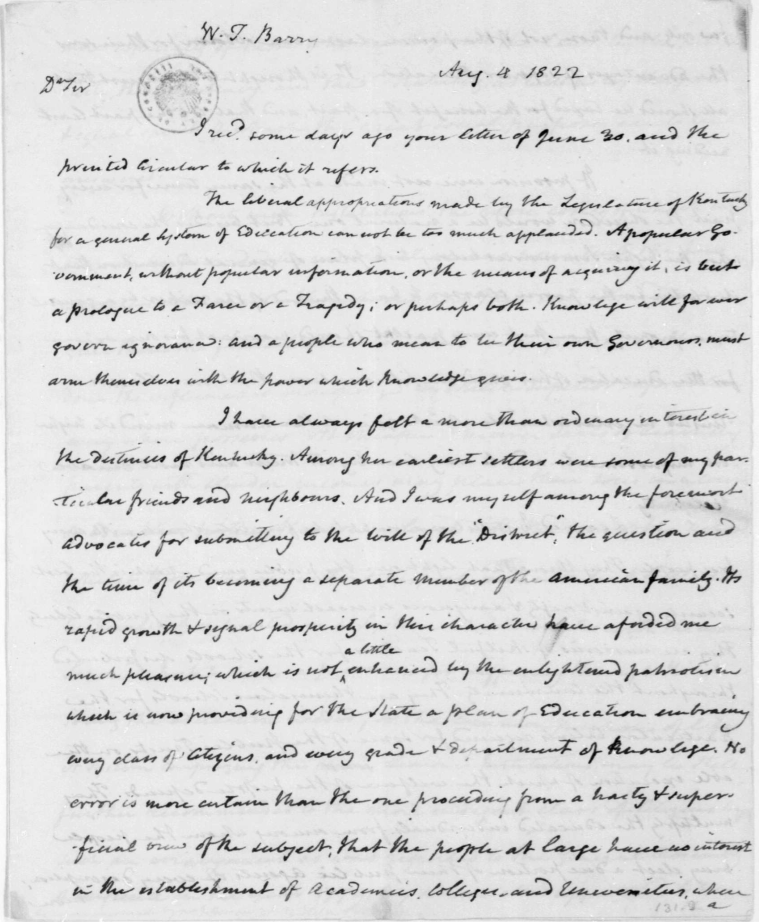 W. T. Barry
Aug. 4 1822
Dr Sir
I recd. some days ago your letter of June 30. and the
printed Circular to which it refers.
The liberal appropriations made by the Legislature of Kentucky
for a general system of Education cannot be too much applauded. A popular Go-
vernment, without popular information, or the means of acquiring it, is but
a Prologue to a Farce or a Tragedy; or perhaps both. Knowledge will forever
govern ignorance: and a people who mean to be their own Governours, must
arm themselves with the power which Knowledge gives.
I have always felt a more than ordinary interest in
the destinies of Kentucky. Among her earliest settlers were some of my par-
ticular friends and neighbours. And I was myself among the foremost
advocates for submitting to the will of the "District", the question and
the time of its becoming a separate member of the American family. Its
rapid growth & signal prosperity in this character have afforded me
a little
much pleasure; which is not enhanced by the enlightened patriotism
which is now providing for the State a plan of Education embracing
every class of Citizens, and every grade & department of Knowledge. No
error is more certain than the one proceeding from a hasty & super-
ficial view of the subject, that the people at large have no interest
in the establishment of Academies, Colleges, and Universities, where
a